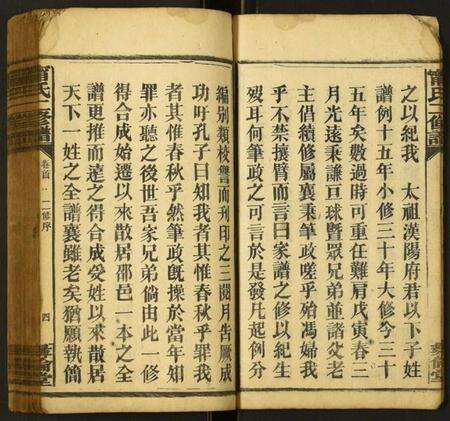 之以紀我 太祖漢陽府君以下子姓
譜例十五年小修三十年大修今三十
五年矣數過時可重任難肩戊寅春三
月光遠秉謙亘球暨眾兄弟並諸父老
主倡續修屬襄秉筆政嗟乎殆馮婦我
乎不禁攘臂而言曰家譜之修以紀生
歿耳何筆政之可言於是發凡起例分
編別類校讐而刊印之三閱月告厥成
功吁孔子曰知我者其惟春秋乎罪我
者其惟春秋乎然筆政既操於當年知
罪亦聽之後世吾家兄弟倘由此一修
得合成始遷以來散居邵邑一本之全
譜更推而遠之得合成受姓以來散居
天下一姓之全譜襄雖老矣猶願執簡
氏二修譜
卷首
二修序
四